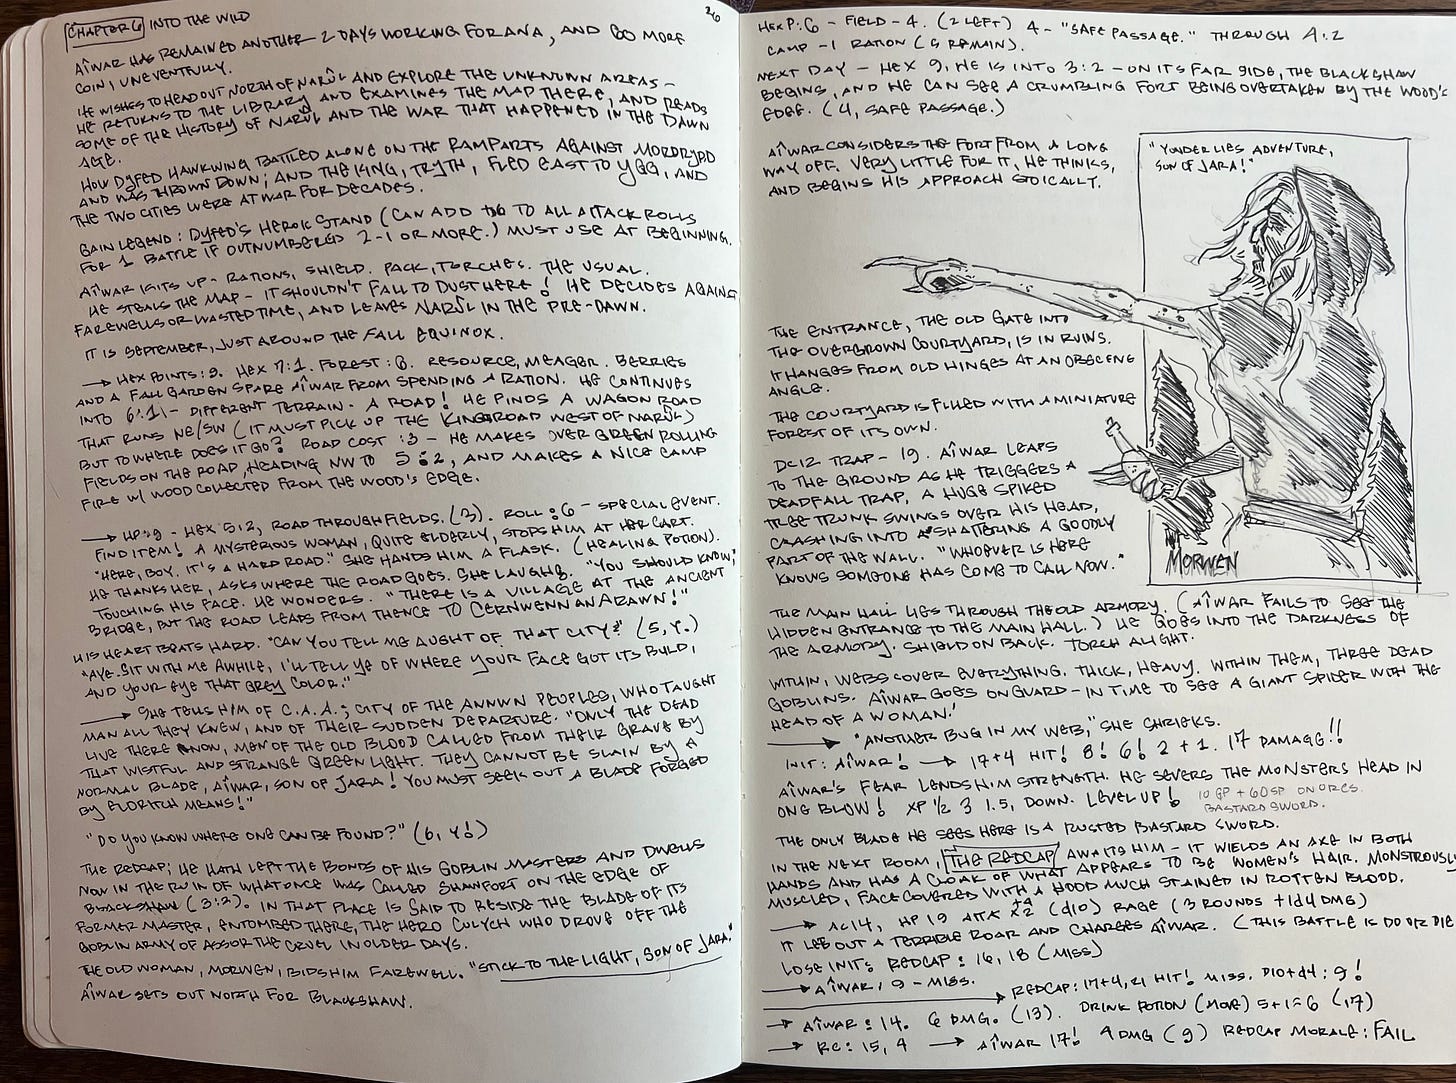 CHAPTER 6 INTO THE WILD
26
AÎWAR HAS REMAINED ANOTHER 2 DAYS WORKING FOR ANA, AND 60 MORE
COIN, UNEVENTFULLY.
HE WISHES TO HEAD OUT NORTH OF NARÛL AND EXPLORE THE UNKNOWN AREAS –
HE RETURNS TO THE LIBRARY AND EXAMINES THE MAP THERE, AND READS
SOME OF THE HISTORY OF NARÛL AND THE WAR THAT HAPPENED IN THE DAWN
AGE.
HOW DYFED HAWKWING BATTLED ALONE ON THE RAMPARTS AGAINST MORDRYDD
AND WAS THROWN DOWN; AND THE KING, TRYTH, FLED EAST TO YGG, AND
THE TWO CITIES WERE AT WAR FOR DECADES.
GAIN LEGEND: DYFED'S HEROIC STAND (CAN ADD +d6 TO ALL ATTACK ROLLS
FOR 1 BATTLE IF OUTNUMBERED 2-1 OR MORE.) MUST USE AT BEGINNING.
AÎWAR KITS UP – RATIONS, SHIELD. PACK, TORCHES. THE USUAL.
HE STEALS THE MAP – IT SHOULDN'T FALL TO DUST HERE! HE DECIDES AGAINST
FAREWELLS OR WASTED TIME, AND LEAVES NARÛL IN THE PRE-DAWN.
IT IS SEPTEMBER, JUST AROUND THE FALL EQUINOX.
→ HEX POINTS: 9. HEX 7:1. FOREST: 6. RESOURCE, MEAGER. BERRIES
AND A FALL GARDEN SPARE AÎWAR FROM SPENDING A RATION. HE CONTINUES
INTO 6:1 – DIFFERENT TERRAIN. A ROAD! HE FINDS A WAGON ROAD
THAT RUNS NE/SW (IT MUST PICK UP THE KINGSROAD WEST OF NARÛL)
BUT TO WHERE DOES IT GO? ROAD COST: 3 – HE MAKES OVER GREEN ROLLING
FIELDS ON THE ROAD, HEADING NW TO 5:2, AND MAKES A NICE CAMP
FIRE W/ WOOD COLLECTED FROM THE WOOD'S EDGE.
→ HP: 9 – HEX 5:2, ROAD THROUGH FIELDS. (3). ROLL: 6 – SPECIAL EVENT.
FIND ITEM! A MYSTERIOUS WOMAN, QUITE ELDERLY, STOPS HIM AT HER CART.
"HERE, BOY. IT'S A HARD ROAD." SHE HANDS HIM A FLASK. (HEALING POTION).
HE THANKS HER, ASKS WHERE THE ROAD GOES. SHE LAUGHS. "YOU SHOULD KNOW,"
TOUCHING HIS FACE. HE WONDERS. "THERE IS A VILLAGE AT THE ANCIENT
BRIDGE, BUT THE ROAD LEADS FROM THENCE TO CERNWENN AN ARAWN!"
HIS HEART BEATS HARD. "CAN YOU TELL ME AUGHT OF THAT CITY?" (5, Y.)
"AYE. SIT WITH ME AWHILE, I'LL TELL YE OF WHERE YOUR FACE GOT ITS BUILD,
AND YOUR EYE THAT GREY COLOR."
→ SHE TELLS HIM OF C.A.A.; CITY OF THE ANNWN PEOPLES, WHO TAUGHT
MAN ALL THEY KNEW, AND OF THEIR SUDDEN DEPARTURE. "ONLY THE DEAD
LIVE THERE NOW, MEN OF THE OLD BLOOD CALLED FROM THEIR GRAVE BY
THAT WISTFUL AND STRANGE GREEN LIGHT. THEY CANNOT BE SLAIN BY A
NORMAL BLADE, AÎWAR, SON OF JARA! YOU MUST SEEK OUT A BLADE FORGED
BY ELDRITCH MEANS!"
"DO YOU KNOW WHERE ONE CAN BE FOUND?" (6, Y!)
THE REDCAP; HE HATH LEFT THE BONDS OF HIS GOBLIN MASTERS AND DWELLS
NOW IN THE RUIN OF WHAT ONCE WAS CALLED SHAWFORT ON THE EDGE OF
BLACKSHAW (3:2). IN THAT PLACE IS SAID TO RESIDE THE BLADE OF ITS
FORMER MASTER, ENTOMBED THERE, THE HERO CULYCH WHO DROVE OFF THE
GOBLIN ARMY OF ASSOR THE CRUEL IN OLDER DAYS.
THE OLD WOMAN, MORWEN, BIDS HIM FAREWELL. "STICK TO THE LIGHT, SON OF JARA."
AÎWAR SETS OUT NORTH FOR BLACKSHAW.
HEX P: 6 – FIELD – 4. (2 LEFT) 4 – "SAFE PASSAGE." THROUGH 4:2
CAMP – 1 RATION (5 REMAIN).
NEXT DAY – HEX 9, HE IS INTO 3:2 – ON ITS FAR SIDE, THE BLACKSHAW
BEGINS, AND HE CAN SEE A CRUMBLING FORT BEING OVERTAKEN BY THE WOOD'S
EDGE. (4, SAFE PASSAGE.)
AÎWAR CONSIDERS THE FORT FROM A LONG
WAY OFF. VERY LITTLE FOR IT, HE THINKS,
AND BEGINS HIS APPROACH STOICALLY.
"YONDER LIES ADVENTURE,
SON OF JARA!"
THE ENTRANCE, THE OLD GATE INTO
THE OVERGROWN COURTYARD, IS IN RUINS.
IT HANGES FROM OLD HINGES AT AN OBSCENE
ANGLE.
THE COURTYARD IS FILLED WITH A MINIATURE
FOREST OF ITS OWN.
DC12 TRAP – 19. AÎWAR LEAPS
TO THE GROUND AS HE TRIGGERS A
DEADFALL TRAP, A HUGE SPIKED
TREE TRUNK SWINGS OVER HIS HEAD,
CRASHING INTO & SHATTERING A GOODLY
PART OF THE WALL. "WHOEVER IS HERE
KNOWS SOMEONE HAS COME TO CALL NOW."
MORWEN
THE MAIN HALL LIES THROUGH THE OLD ARMORY. (AÎWAR FAILS TO SEE THE
HIDDEN ENTRANCE TO THE MAIN HALL.) HE GOES INTO THE DARKNESS OF
THE ARMORY. SHIELD ON BACK. TORCH ALIGHT.
WITHIN, WEBS COVER EVERYTHING. THICK, HEAVY. WITHIN THEM, THREE DEAD
GOBLINS. AÎWAR GOES ON GUARD – IN TIME TO SEE A GIANT SPIDER WITH THE
HEAD OF A WOMAN!
→ "ANOTHER BUG IN MY WEB," SHE SHRIEKS.
INIT: AÎWAR! → 17+4 HIT! 8! 6! 2 + 1. 17 DAMAGE!!
AÎWAR'S FEAR LENDS HIM STRENGTH. HE SEVERS THE MONSTERS HEAD IN
ONE BLOW! XP 1/2 3 1.5, DOWN. LEVEL UP! 10 GP + 60 SP ON ORCS.
BASTARD SWORD.
THE ONLY BLADE HE SEES HERE IS A RUSTED BASTARD SWORD.
IN THE NEXT ROOM, THE REDCAP AWAITS HIM – IT WIELDS AN AXE IN BOTH
HANDS AND HAS A CLOAK OF WHAT APPEARS TO BE WOMEN'S HAIR. MONSTROUSLY
MUSCLED, FACE COVERED WITH A HOOD MUCH STAINED IN ROTTEN BLOOD.
→ AC14, HP 19 ATTK +4 x2 (d10) RAGE (3 ROUNDS +1d4 DMG)
IT LET OUT A TERRIBLE ROAR AND CHARGES AÎWAR. (THIS BATTLE IS DO OR DIE
LOSE INIT: REDCAP: 16, 18 (MISS)
→ AÎWAR: 9 – MISS.
→ REDCAP: 17+4, 21 HIT! MISS. D10+d4: 9!
→ AÎWAR: 14. 6 DMG. (13). DRINK POTION (MOVE) 5+1=6 (17)
→ RC: 15, 4 → AÎWAR 17! 4 DMG (9) REDCAP MORALE: FAIL